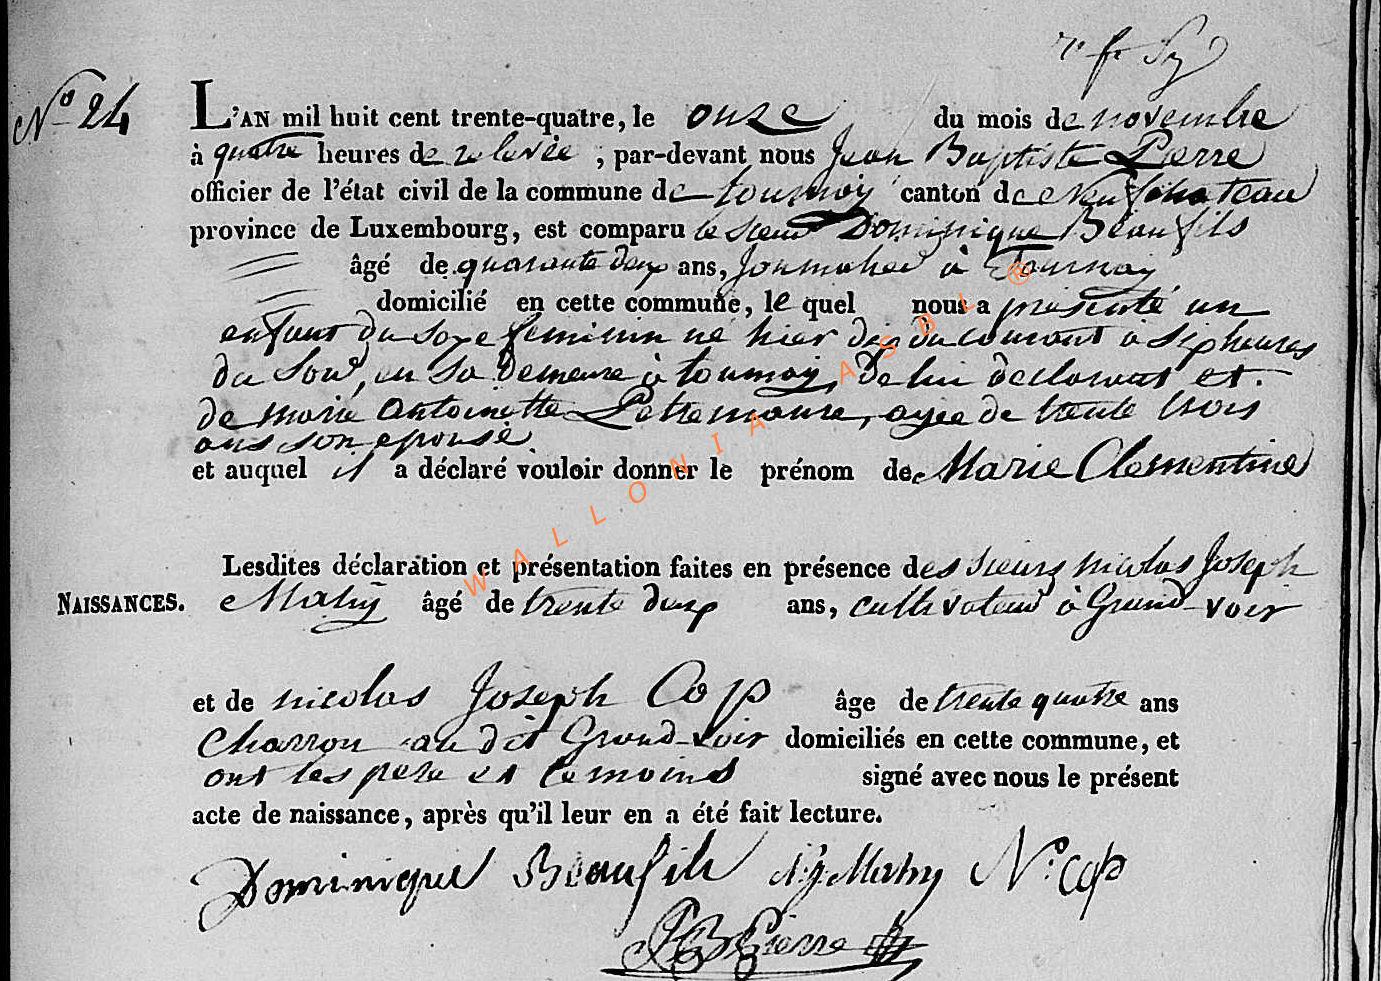 N° 24
L'AN mil huit cent trente-quatre, le onze du mois de novembre
à quatre heures de relevée ; par-devant nous Jean Baptiste Pierre
officier de l'état civil de la commune de tournay canton de Neufchateau
province de Luxembourg, est comparu le sieur Dominique Beaufils
âgé de quarante deux ans, Journalier à Tournay
domicilié en cette commune, le quel nous a présenté un
enfant du sexe feminin né hier dix du courant à six heures
du soir, en sa demeure à tournay, de lui declarant et
de marie antoinette Petremanse, agée de trente trois
ans son epouse
et auquel il a déclaré vouloir donner le prénom de Marie Clementine
Lesdites déclaration et présentation faites en présence des sieurs nicolas Joseph
NAISSANCES. Mahy âgé de trente deux ans, cultivateur à Grand-voir
et de nicolas Joseph Cop âge de trente quatre ans
Charron au dit Grand-voir domiciliés en cette commune, et
ont les pere et temoins signé avec nous le présent
acte de naissance, après qu'il leur en a été fait lecture.
Dominique Beaufils N.J. Mahy N° Cop
JB Pierre
WALLONIA ASBL ®